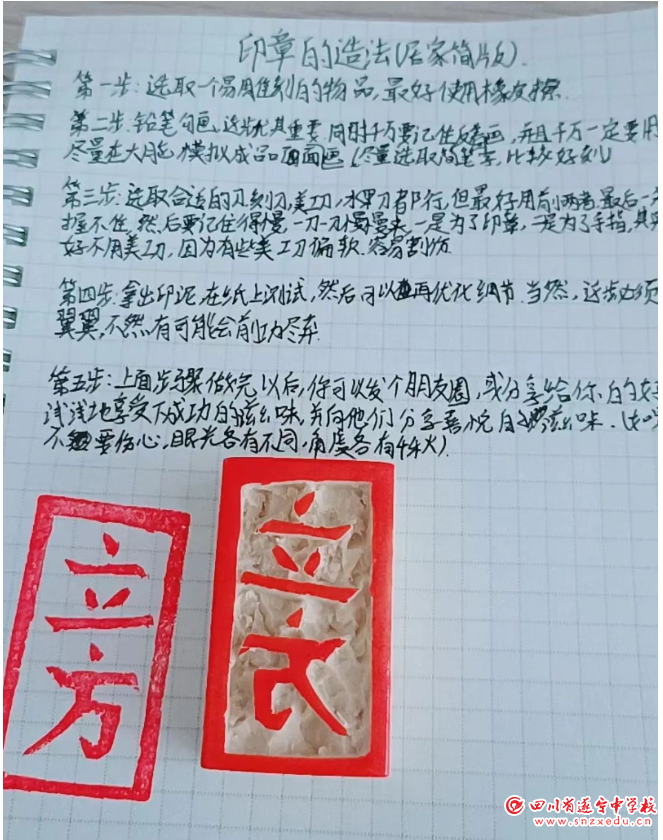 印章的造法(居家简版).
第一步:选取一个易雕刻的物品,最好使用橡皮擦.
第二步:铅笔勾画,这步尤其重要,同时千万要记住反着画,并且千万一定要用
尽量在大脑模拟成品画面画(尽量选取简笔字,比较好刻)
第三步:选取合适的刀,刻刀,美工刀,水果刀都行,但最好用前两者,最后一
握不住,然后要记住得慢,一刀一刀慢慢来,一是为了印章,二是为了手指,其实
好不用美工刀,因为有些美工刀偏软.容易割伤.
第四步:拿出印泥,在纸上测试,然后可以再优化细节.当然,这步必须
翼翼,不然有可能会前功尽弃.
第五步:上面步骤做完以后,你可以发个朋友圈,或分享给你的好
浅浅地享受下成功的滋味,并向他们分享喜悦的滋味.(如
不要伤心,眼光各有不同,角度各有千秋)
立方
立方
四川省遂宁中学校
www.snzxedu.cn